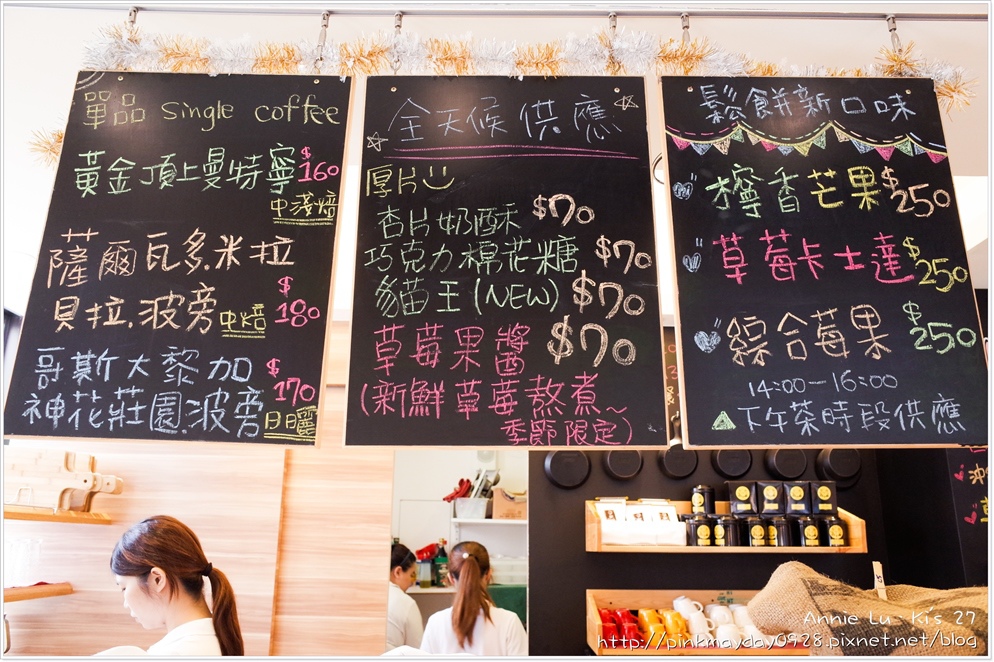 單品 single coffee
黃金頂上曼特寧 $160
中淺焙
薩爾瓦多.米拉
貝拉.波旁 中焙 $180
哥斯大黎加 $170
神花莊園.波旁 日曬
全天候供應
厚片
杏片奶酥 $70
巧克力棉花糖 $70
貓王(NEW) $70
草莓果醬 $70
(新鮮草莓熬煮~
季節限定)
鬆餅新口味
檸香芒果 $250
草莓卡士達 $250
綜合莓果 $250
14:00-16:00
下午茶時段供應
Annie Lu Ki's 27
http://pinkmayday0928.pixnet.net/blog